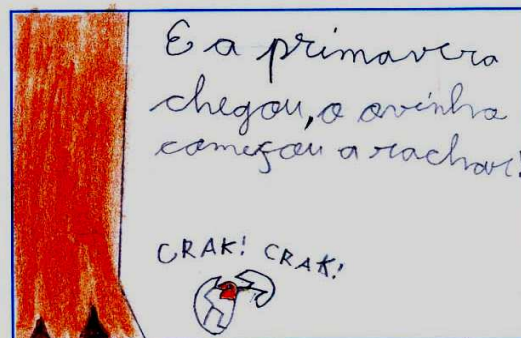 E a primavera
chegou, o ovinho
começou a rachar!
CRAK! CRAK!